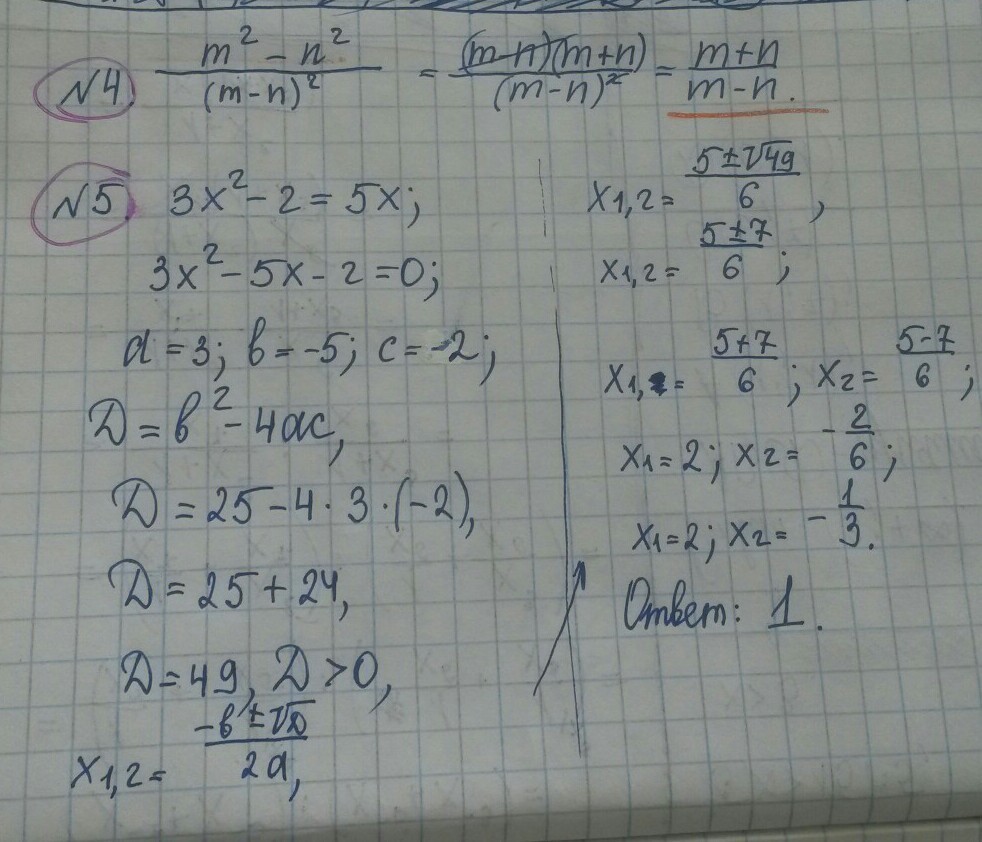 №4 (m² - n²)/(m-n)² = (m-n)(m+n)/(m-n)² = (m+n)/(m-n).
№5 3x² - 2 = 5x;
3x² - 5x - 2 = 0;
a = 3; b = -5; c = -2;
D = b² - 4ac,
D = 25 - 4 · 3 · (-2),
D = 25 + 24,
D = 49, D > 0,
x1,2 = (-b ± √D)/2a,
x1,2 = (5 ± √49)/6,
x1,2 = (5 ± 7)/6;
x1 = (5+7)/6; x2 = (5-7)/6;
x1 = 2; x2 = -2/6;
x1 = 2; x2 = -1/3.
Ответ: 1.